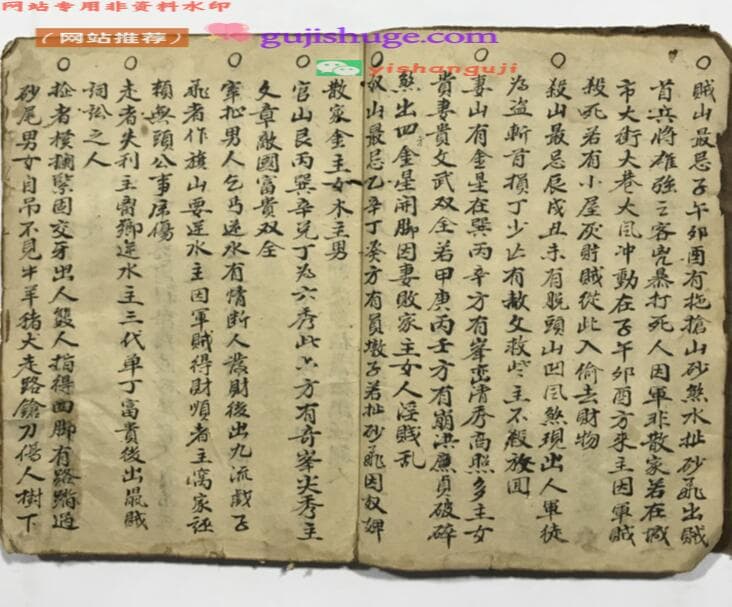 网站专用非资料水印
（网站推荐）
gujishuge.com
yishanguji
賊山最忌子午卯酉有拖搶山砂煞水扯砂飛出賊
首兵將雄強主客兇暴打死人因軍非散家若在城
市大街大巷大凬冲動在子午卯酉方來主因軍賊
殺死若有小屋厌財賊從此入偷去財物
殺山最忌辰戌丑未有脫頭山凹凬煞現出人軍徒
為盗斬首損丁少亡有赦文救些主不殺放囬
妻山有金星在巽丙辛方有峯巒清秀高照多主女
貴妻貴文武双全若甲庚丙壬方有崩洪廉貞破碎
煞出四金星開脚因妻敗家主女人淫賤乱
奴山最忌乙辛丁癸方有員墩子若扯砂飛因奴婢
散家金主女木主男
官山艮丙巽辛兌丁為六秀此六方有奇峯尖秀主
文章敵國富貴双全
牽扯男人乞丐逆水有情断人發財後出九流戲子
飛者作旗山要逆水主因軍賊得財順者主蕩家誣
賴無頭公事屈傷
走者失利主離鄉逆水主三代单丁富貴後出㝡賊
詞訟之人
撿者横攔緊固交牙出人雙人指得面脚有路踏過
砂尾男女自吊不見牛羊猪犬走路鎗刀傷人樹下